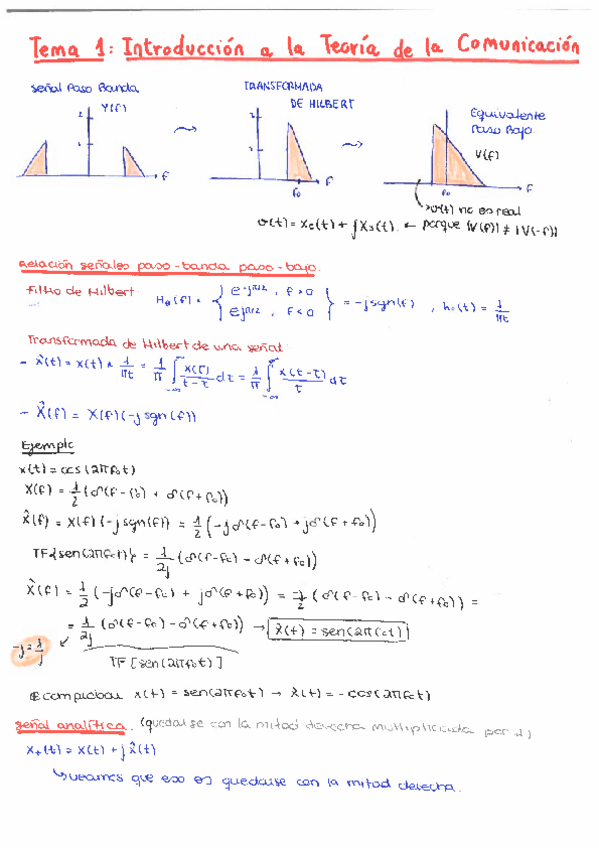 Tema 1: Introducción a la Teoría de la Comunicación
Señal Paso Banda
TRANSFORMADA
DE HILBERT
Equivalente
Paso Bajo
Y(f)
2
1
f
2
1
f₀
f
V(f)
f₀
f
v(t) no es real
v(t) = xc(t) + j xs(t). ← porque |V(f)| ≠ |V(-f)|
Relación señales paso-banda paso-bajo.
Filtro de Hilbert
H_Q(f) = { e^{-jπ/2}, f > 0
e^{jπ/2}, f < 0 } = -j sgn(f), h_Q(t) = 1/πt
Transformada de Hilbert de una señal
- x̂(t) = x(t) * 1/πt = 1/π ∫_{-∞}^{∞} x(τ)/(t-τ) dτ = 1/π ∫_{-∞}^{∞} x(t-τ)/τ dτ
- X̂(f) = X(f)(-j sgn(f))
Ejemplo
x(t) = cos(2πf₀t)
X(f) = 1/2 (δ(f-f₀) + δ(f+f₀))
X̂(f) = X(f)(-j sgn(f)) = 1/2 (-jδ(f-f₀) + jδ(f+f₀))
TF{sen(2πf₀t)} = 1/2j (δ(f-f₀) - δ(f+f₀))
X̂(f) = 1/2 (-jδ(f-f₀) + jδ(f+f₀)) = -j/2 (δ(f-f₀) - δ(f+f₀)) =
= 1/2j (δ(f-f₀) - δ(f+f₀)) → x̂(t) = sen(2πf₀t)
-j = 1/j
TF[sen(2πf₀t)]
comprobar x(t) = sen(2πf₀t) → x̂(t) = -cos(2πf₀t)
Señal analítica. (quedarse con la mitad derecha multiplicada por 2)
x₊(t) = x(t) + j x̂(t)
↳ veamos que eso es quedarse con la mitad derecha.